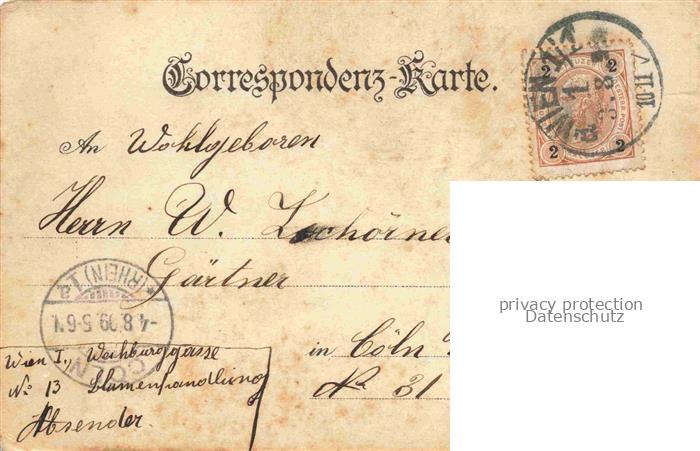 Correspondenz-Karte.
WIEN 1/1
1
3. 8
10-11 V
2 2
2 2
An Wohlgeboren
Herrn W. Zschörne
Gärtner
in Cöln
No 31
CÖLN
(RHEIN) 1.a
-4.8.99.5-6
Wien I., Weihburggasse
No 13 Blumenhandlung
Absender.
privacy protection
Datenschutz